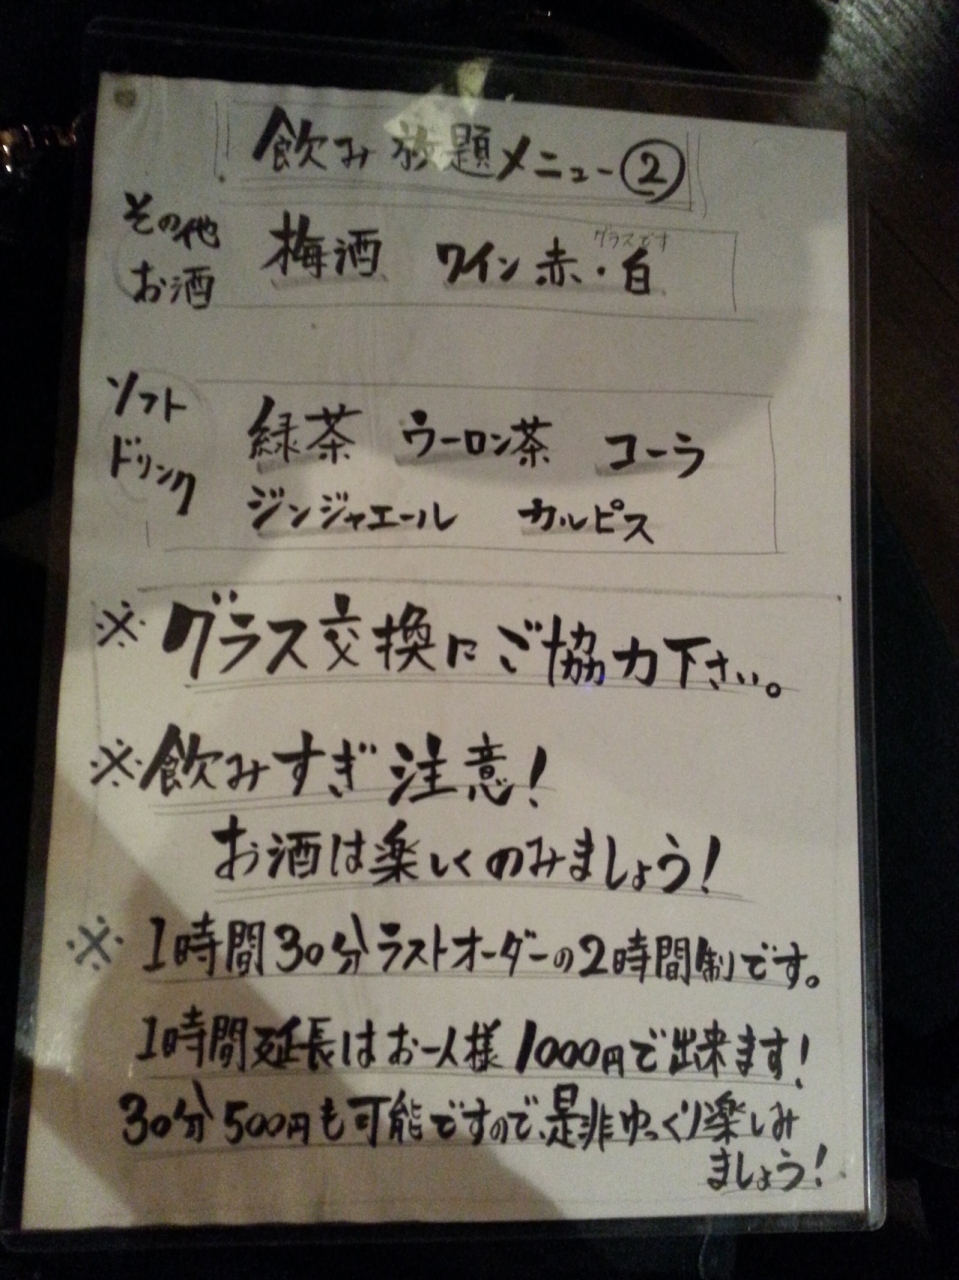 飲み放題メニュー②
その他
お酒
梅酒 ワイン 赤・白
グラスです
ソフト
ドリンク
緑茶 ウーロン茶 コーラ
ジンジャエール カルピス
※グラス交換にご協力下さい。
※飲みすぎ注意!
お酒は楽しくのみましょう!
※1時間30分ラストオーダーの2時間制です。
1時間延長はお一人様1000円で出来ます!
30分500円も可能ですので、是非ゆっくり楽しみ
ましょう!